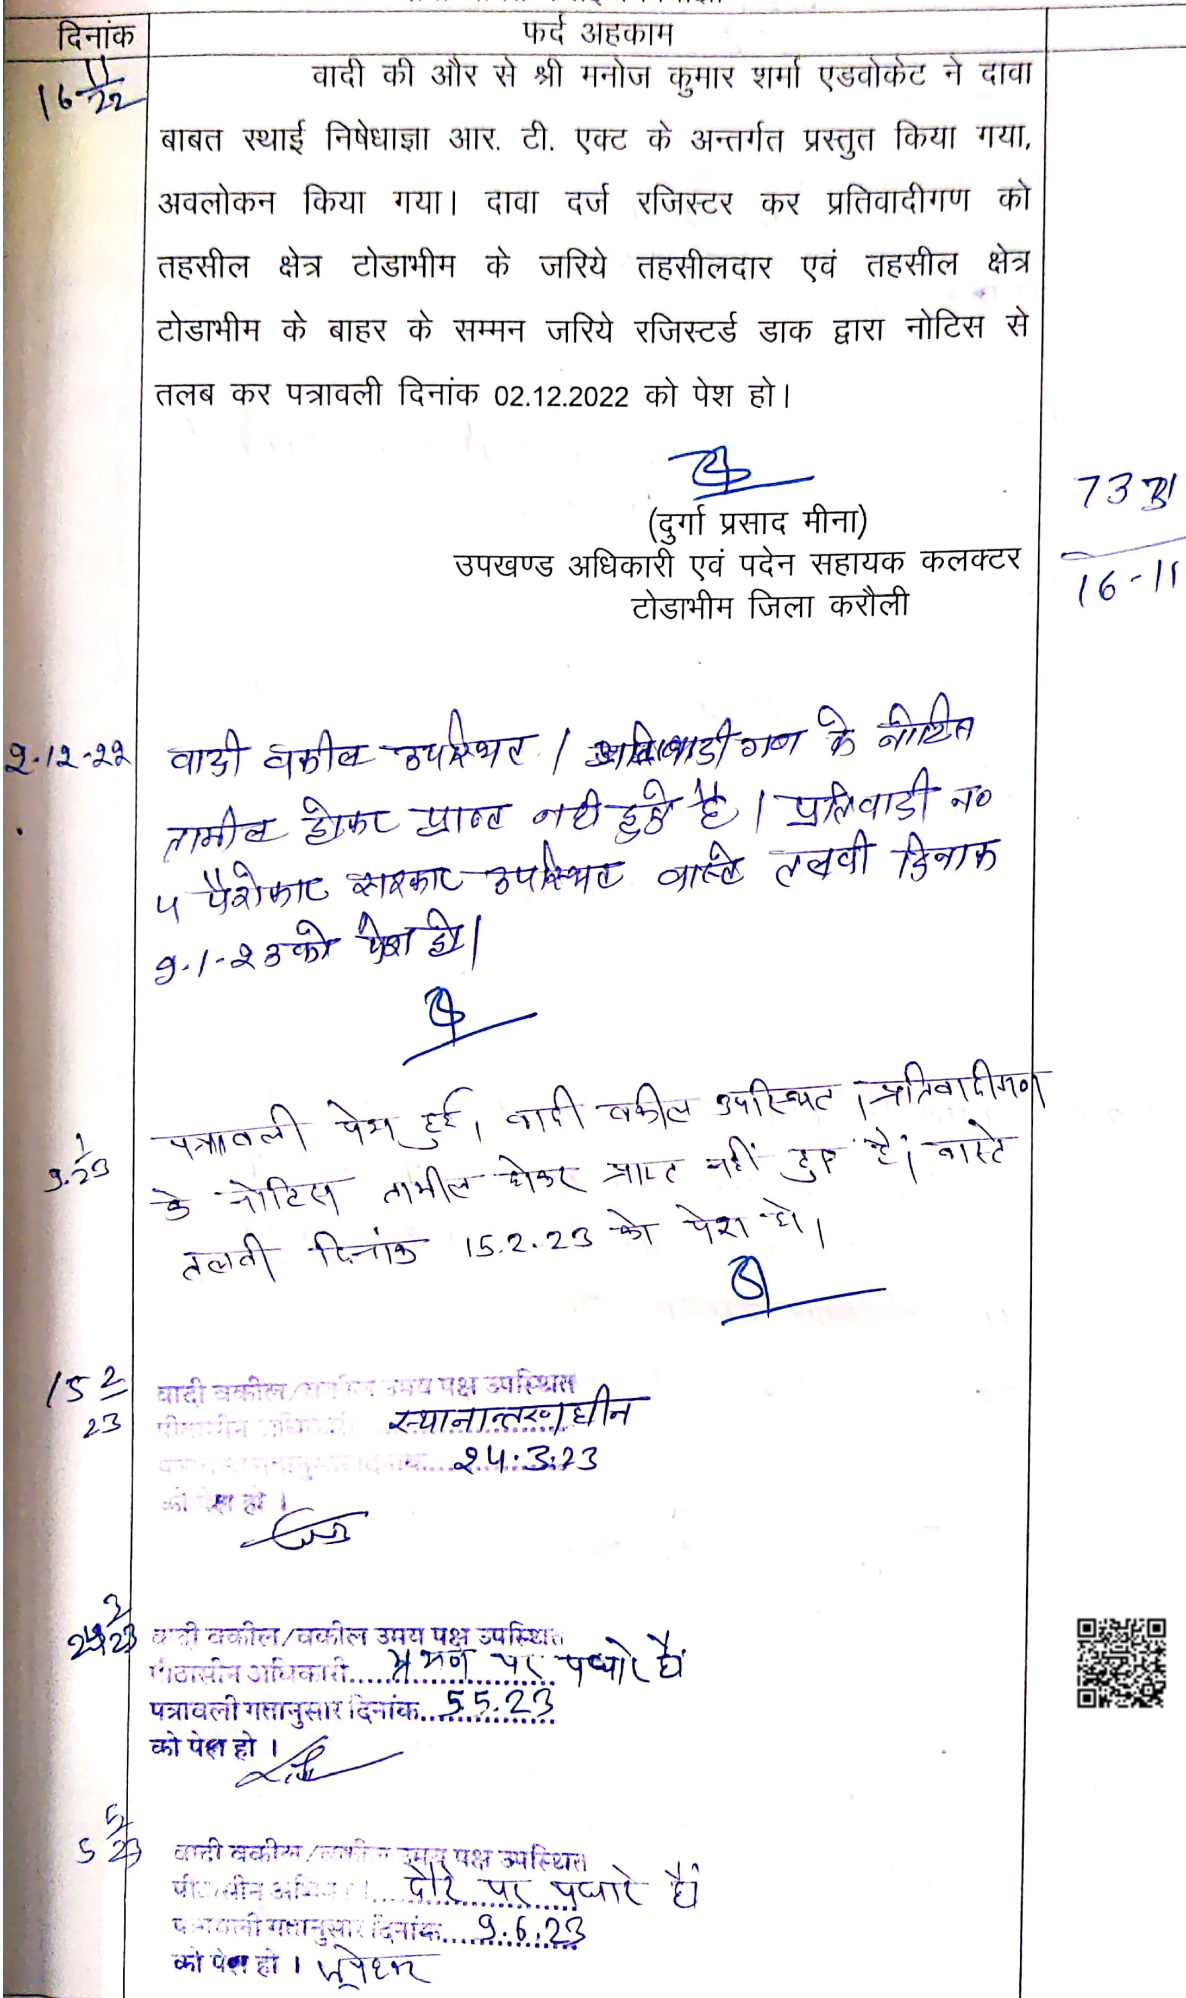 दिनांक
फर्द अहकाम
16 11/22
वादी की और से श्री मनोज कुमार शर्मा एडवोकेट ने दावा
बाबत स्थाई निषेधाज्ञा आर. टी. एक्ट के अन्तर्गत प्रस्तुत किया गया,
अवलोकन किया गया। दावा दर्ज रजिस्टर कर प्रतिवादीगण को
तहसील क्षेत्र टोडाभीम के जरिये तहसीलदार एवं तहसील क्षेत्र
टोडाभीम के बाहर के सम्मन जरिये रजिस्टर्ड डाक द्वारा नोटिस से
तलब कर पत्रावली दिनांक 02.12.2022 को पेश हो।
(दुर्गा प्रसाद मीना)
उपखण्ड अधिकारी एवं पदेन सहायक कलक्टर
टोडाभीम जिला करौली
73
16-11
2.12-22
वादी वकील उपस्थित। प्रतिवादीगण के नोटिस
तामील होकर प्राप्त नही हुऐ है। प्रतिवादी न०
५ पैरोकार सरकार उपस्थित वास्ते तलवी दिनाक
9.1-23 को पेश हो।
9.1/23
पत्रावली पेश हुई। वादी वकील उपस्थित। प्रतिवादीगण
के नोटिस तामील होकर प्राप्त नहीं हुए है। वास्ते
तलवी दिनांक 15.2.23 को पेश हो।
15 2/23
वादी वकील/वकील उभय पक्ष उपस्थित
पीठासीन अधिकारी स्थानान्तरणाधीन
पत्रावली गतानुसार दिनांक....24.3.23
को पेश हो ।
24 3/23
वादी वकील/वकील उभय पक्ष उपस्थित
पीठासीन अधिकारी....भ्रमण पर पधारे हैं
पत्रावली गतानुसार दिनांक....5.5.23
को पेश हो ।
5 5/23
वादी वकील/वकील उभय पक्ष उपस्थित
पीठासीन अधिकारी....दौरे पर पधारे हैं
पत्रावली गतानुसार दिनांक....9.6.23
को पेश हो ।